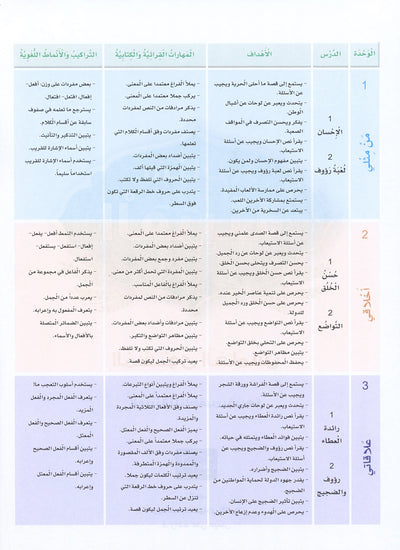 الوَحْدَة
الدَّرْس
الأَهْدَاف
المَهَارات القِرائيَّة والكِتابيَّة
التَّراكيب والأَنْماط اللُّغَويَّة
1
مَنْ مِثْلي
1
الإحْسان
2
لُعْبَةُ رَؤوف
- يستمع إلى قصة ما أحلى الحرية ويجيب
عن الأسئلة.
- يتحدث ويعبر عن لوحات عن أشبال
الوطن.
- يذكر ويحسن التصرف في المواقف
الصعبة.
- يقرأ نص الإحسان ويجيب عن أسئلة
الاستيعاب.
- يتبين مفهوم الإحسان ولمن يكون.
- يقرأ نص لعبة رؤوف ويجيب عن أسئلة
الاستيعاب.
- يحرص على ممارسة الألعاب المفيدة.
- يستمتع بمشاركة الآخرين اللعب.
- يبتعد عن السخرية من الآخرين.
- يملأ الفراغ معتمدا على المعنى.
- يركب جملا معتمدا على المعنى.
- يذكر مرادفات من النص لمفردات
محددة.
- يصنف مفردات وفق أقسام الكلام التي
تعلمها.
- يتبين أضداد بعض المفردات.
- يتبين الهمزة التي قبلها ألف.
- يتبين الحروف التي تلفظ ولا تكتب.
- يتدرب على حروف خط الرقعة التي تكون
فوق السطر.
- بعض مفردات على وزن أفعل-
إفعال، افتعل- افتعال.
- يسترجع ما تعلمه في صفوف
سابقة عن أقسام الكلام.
- يتبين التذكير والتأنيث.
- يتبين أسماء الإشارة للقريب.
- يستخدم أسماء الإشارة للقريب
استخداما سليما.
2
أَخْلاقي
1
حُسْنُ
الخُلُق
2
التَّواضُع
- يستمع إلى قصة الصدى علمني ويجيب
عن أسئلة الاستيعاب.
- يتحدث ويعبر عن لوحات عن رد الجميل.
- يحسن التصرف ويتحلى بحسن الخلق.
- يقرأ نص حسن الخلق ويجيب عن أسئلة
الاستيعاب.
- يحرص على تنمية عناصر الخير عنده.
- يحرص على حسن الخلق ورد الجميل
للدولة.
- يقرأ نص التواضع ويجيب عن أسئلة
الاستيعاب.
- يحرص على التحلي بخلق التواضع.
- يتبين مظاهر التواضع.
- يحفظ المحفوظات ويجيب عن الأسئلة.
- يملأ الفراغ معتمدا على المعنى.
- يتبين مفرد وجمع بعض المفردات.
- يتبين المفردات التي تحمل أكثر من معنى.
- يملأ الفراغ بالفاعل المناسب.
- يذكر مرادفات من النص لمفردات
محددة.
- يتبين مرادفات وأضداد بعض المفردات.
- يتبين مظاهر التواضع والتكبر.
- يتبين الحروف التي تكتب ولا تلفظ.
- يعيد ترتيب الجمل ليكون قصة.
- يستخدم النمط أفعل- يفعل-
إفعال، استفعل- يستفعل-
استفعال.
- يذكر الفاعل في مجموعة من
الجمل.
- يعرب عددا من الجمل.
- يتعرف المفعول به وإعرابه.
- يتبين الضمائر المتصلة
بالأفعال والأسماء.
3
عَلاقاتي
1
رائِدة
العَطاء
2
رَؤوف
والضَّجيج
- يستمع إلى قصة الفراشة وورقة الشجر
ويجيب عن الأسئلة.
- يتحدث ويعبر عن لوحات جاري الجديد..
- يقرأ نص رائدة العطاء ويجيب عن أسئلة
الاستيعاب.
- يتبين فوائد العطاء ويتمثله في حياته.
- يقرأ نص رؤوف والضجيج ويجيب عن
أسئلة الاستيعاب.
- يتبين الضجيج وأضراره.
- يقدر جهود الدولة لحماية المواطنين من
الضجيج.
- يتبين تأثير الضجيج على الإنسان.
- يحرص على الهدوء وعدم إزعاج الآخرين.
- يملأ الفراغ ويتبين أنواع التبرعات.
- يركب جملا معتمدا على المعنى.
- يصنف وفق الأفعال الثلاثية المجردة
والمزيدة.
- يميز الفعل الصحيح والفعل المعتل.
- يصنف مفردات وفق الألف المقصورة
والممدودة والهمزة المتطرفة.
- يرتب الكلمات ليكون جملا.
- يتدرب على حروف خط الرقعة التي
تنزل عن السطر.
- يعيد ترتيب الجمل ليكون قصة.
- يستخدم أسلوب التعجب ما
أفعل.
- يتعرف الفعل المجرد والفعل
المزيد.
- يتعرف الفعل الصحيح والفعل
المعتل.
- يتبين أقسام الفعل الصحيح
وإعرابه.
- يتبين أقسام الفعل المعتل
وإعرابه.